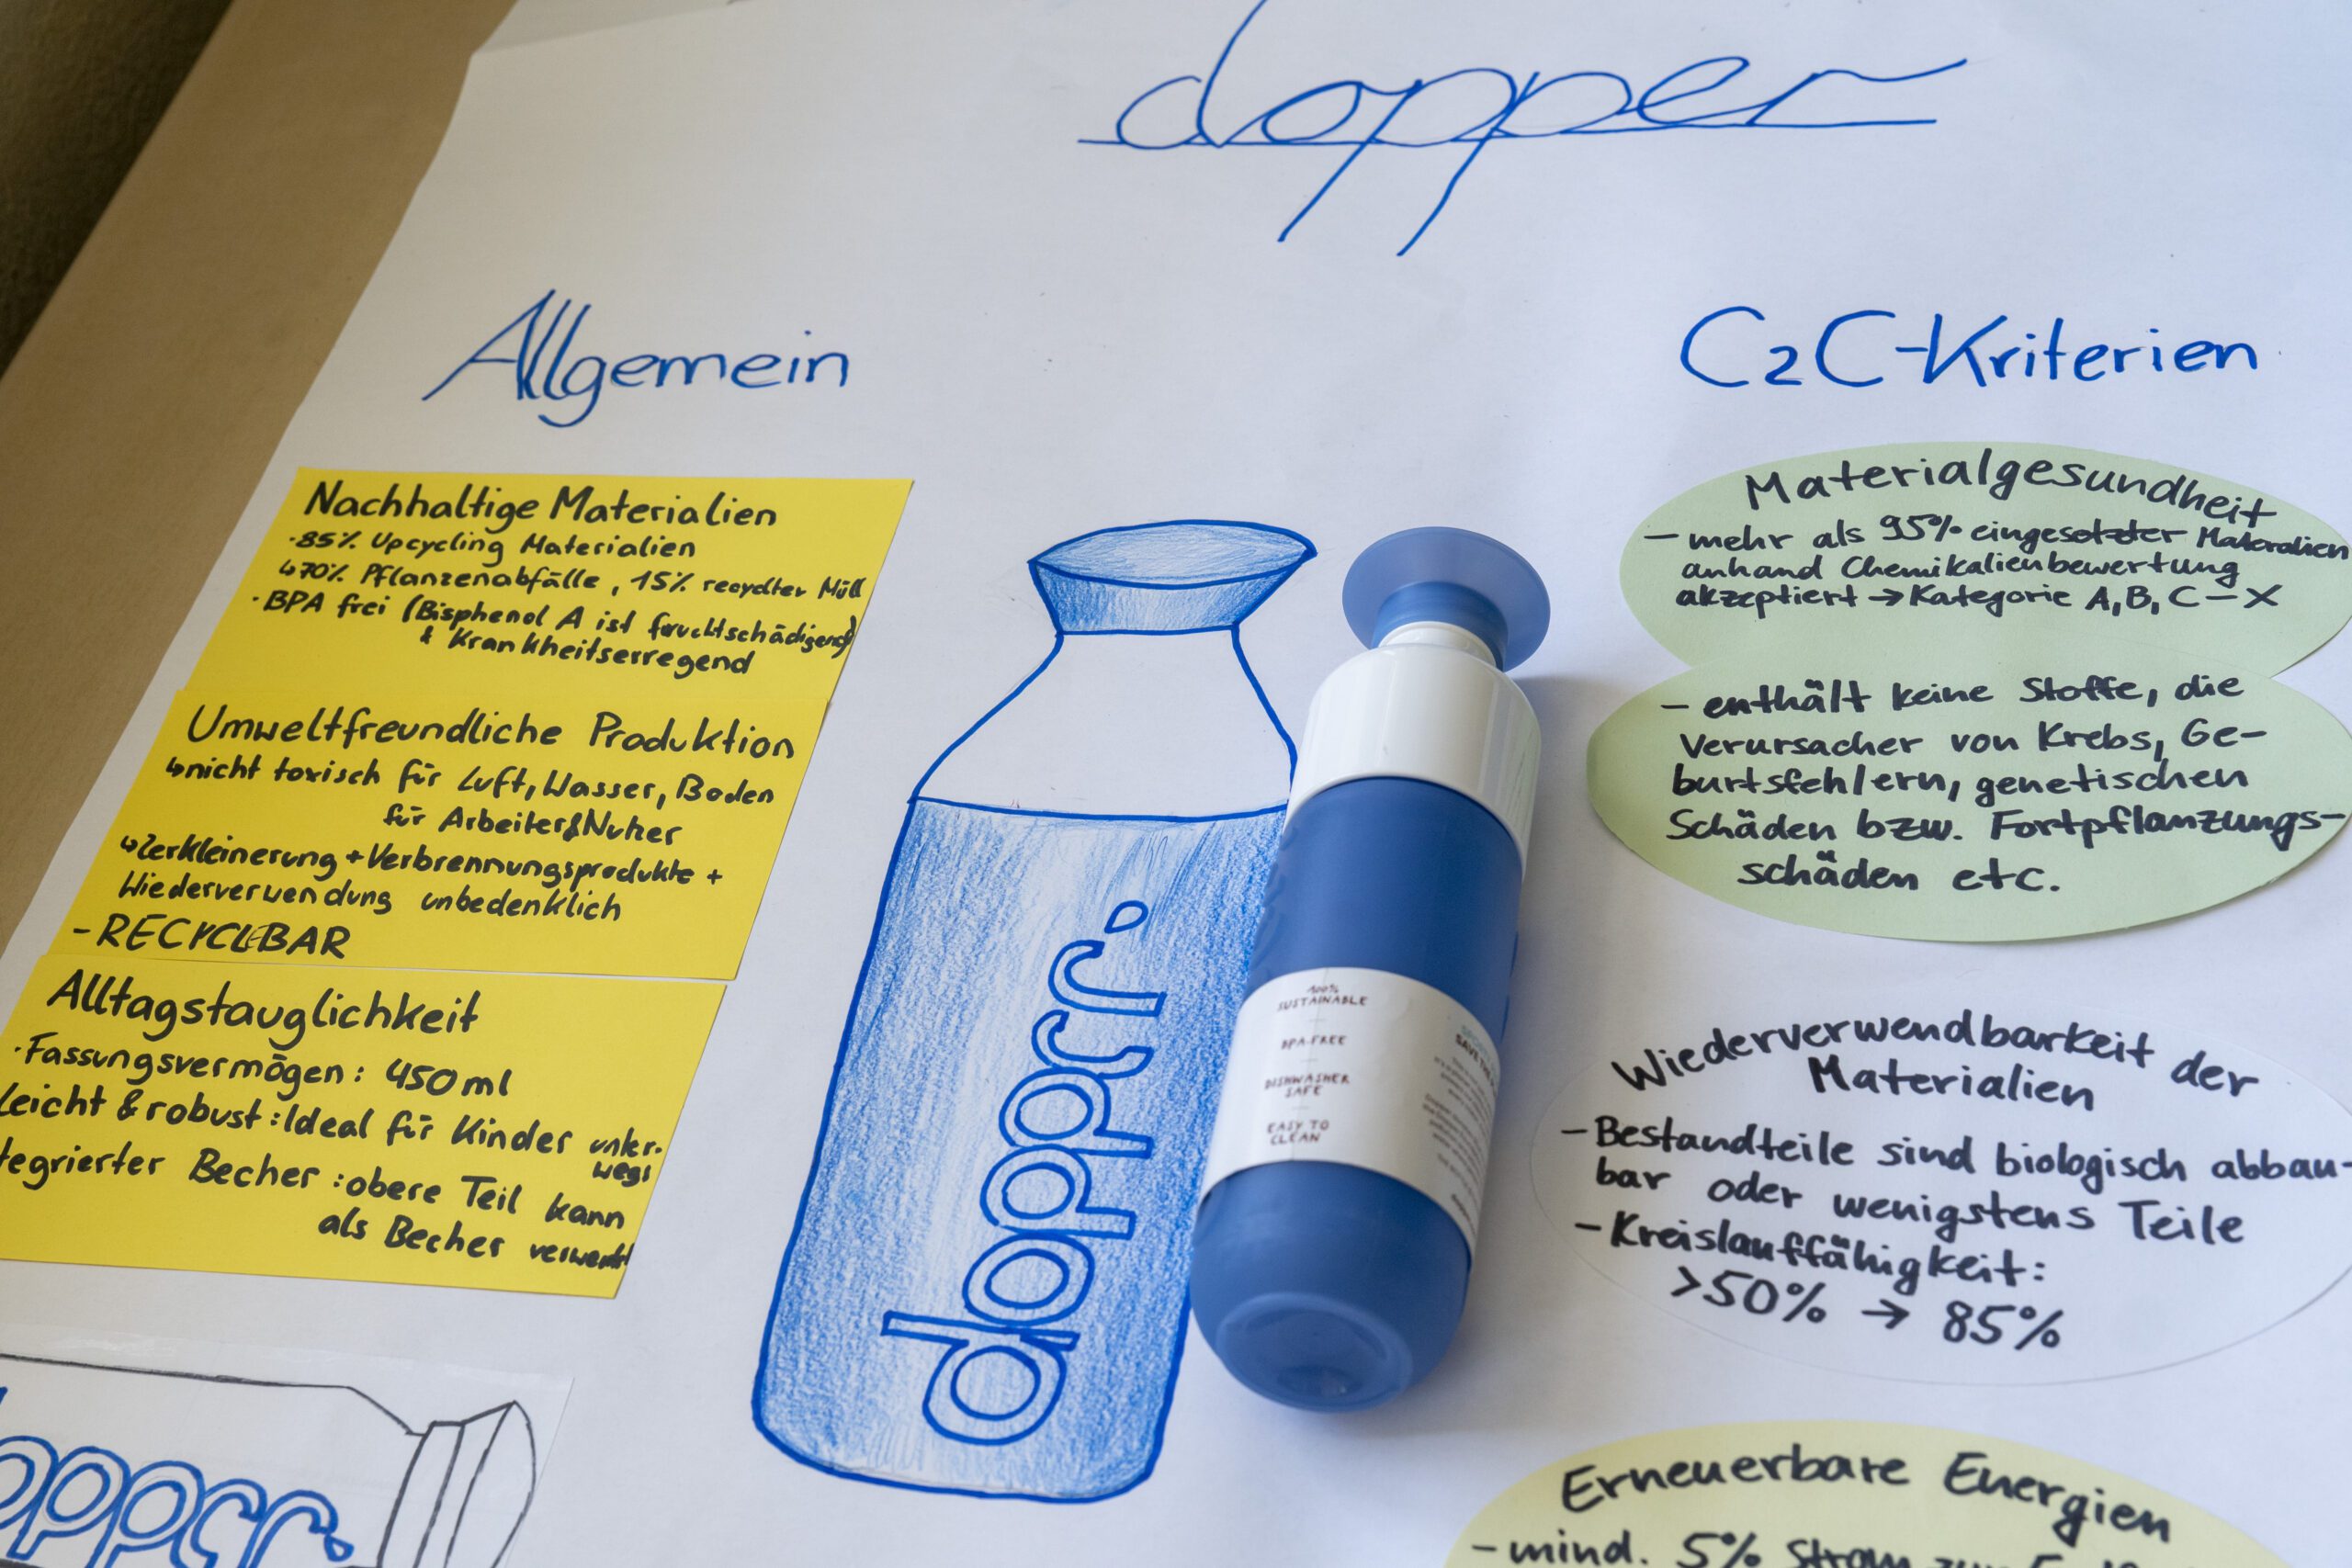 dopper
Allgemein
Nachhaltige Materialien
·85% Upcycling Materialien
↳70% Pflanzenabfälle, 15% recyclter Müll
·BPA frei (Bisphenol A ist fruchtschädigend)
& Krankheitserregend
Umweltfreundliche Produktion
↳nicht toxisch für Luft, Wasser, Boden
für Arbeiter&Nutzer
↳Zerkleinerung + Verbrennungsprodukte +
Wiederverwendung unbedenklich
- RECYCLEBAR
Alltagstauglichkeit
·Fassungsvermögen: 450 ml
leicht & robust: Ideal für Kinder unter-
wegs
tegrierter Becher: obere Teil kann
als Becher
dopper
100%
SUSTAINABLE
BPA-FREE
DISHWASHER
SAFE
EASY TO
CLEAN
C2C-Kriterien
Materialgesundheit
- mehr als 95% eingesetzter Materialien
anhand Chemikalienbewertung
akzeptiert → Kategorie A, B, C - X
- enthält keine Stoffe, die
Verursacher von Krebs, Ge-
burtsfehlern, genetischen
Schäden bzw. Fortpflanzungs-
schäden etc.
Wiederverwendbarkeit der
Materialien
- Bestandteile sind biologisch abbau-
bar oder wenigstens Teile
- Kreislauffähigkeit:
>50% → 85%
Erneuerbare Energien
- mind. 5% Strom
opper